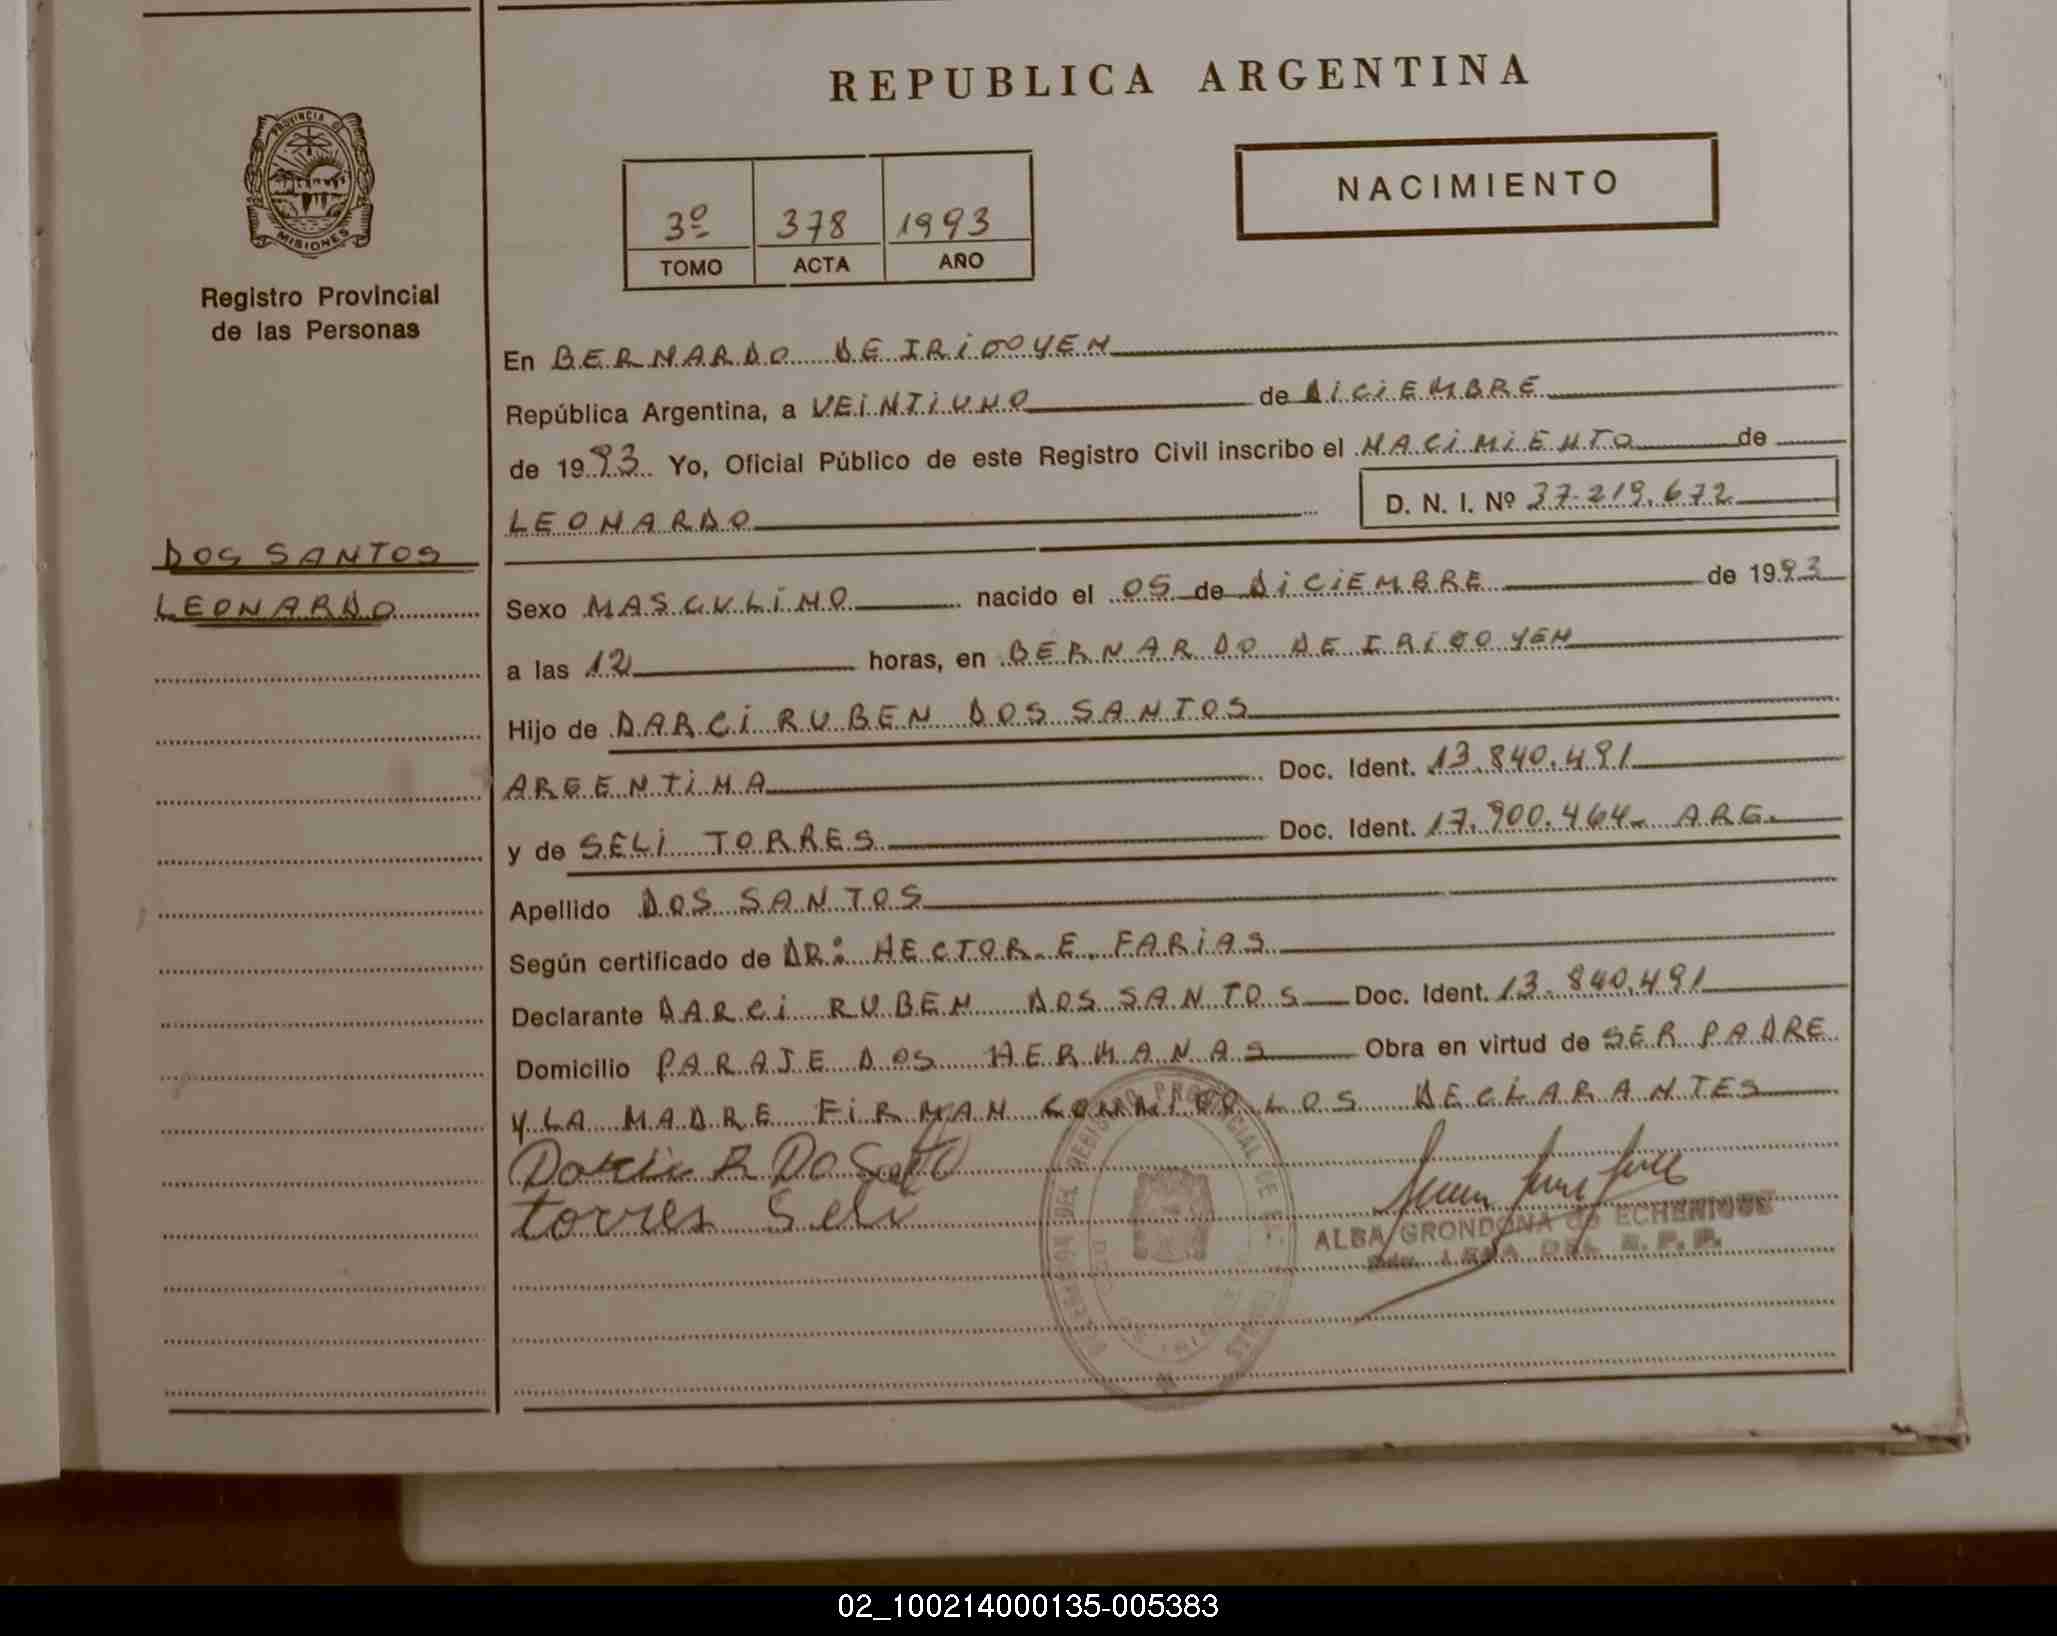 REPUBLICA ARGENTINA
PROVINCIA DE
MISIONES
Registro Provincial
de las Personas
NACIMIENTO
3º 378 1993
TOMO ACTA AÑO
En BERNARDO DE IRIGOYEN
República Argentina, a VEINTIUNO de DICIEMBRE
de 1993 Yo, Oficial Público de este Registro Civil inscribo el NACIMIENTO de
LEONARDO D. N. I. Nº 37.219.672
DOS SANTOS
LEONARDO
Sexo MASCULINO nacido el 05 de DICIEMBRE de 1993
a las 12 horas, en BERNARDO DE IRIGOYEN
Hijo de DARCI RUBEN DOS SANTOS
ARGENTINA Doc. Ident. 13.840.491
y de SELI TORRES Doc. Ident. 17.900.464- ARG.
Apellido DOS SANTOS
Según certificado de DR: HECTOR E. FARIAS
Declarante DARCI RUBEN DOS SANTOS Doc. Ident. 13.840.491
Domicilio PARAJE DOS HERMANAS Obra en virtud de SER PADRE
Y LA MADRE FIRMAN CONMIGO LOS DECLARANTES
torres Seli
ALBA GRONDONA de ECHENIQUE
02_100214000135-005383